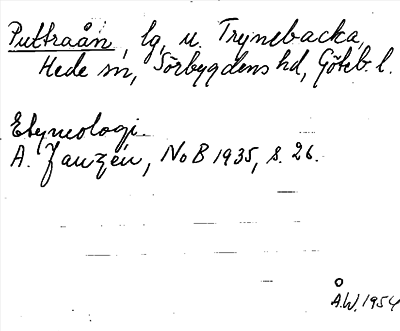 Puttraån, lg, u. Trynebacka,
Hede sn, Sörbygdens hd, Göteb. l.
Etymologi.
A. Janzén, NoB 1935, s. 26.
Å.W. 1954